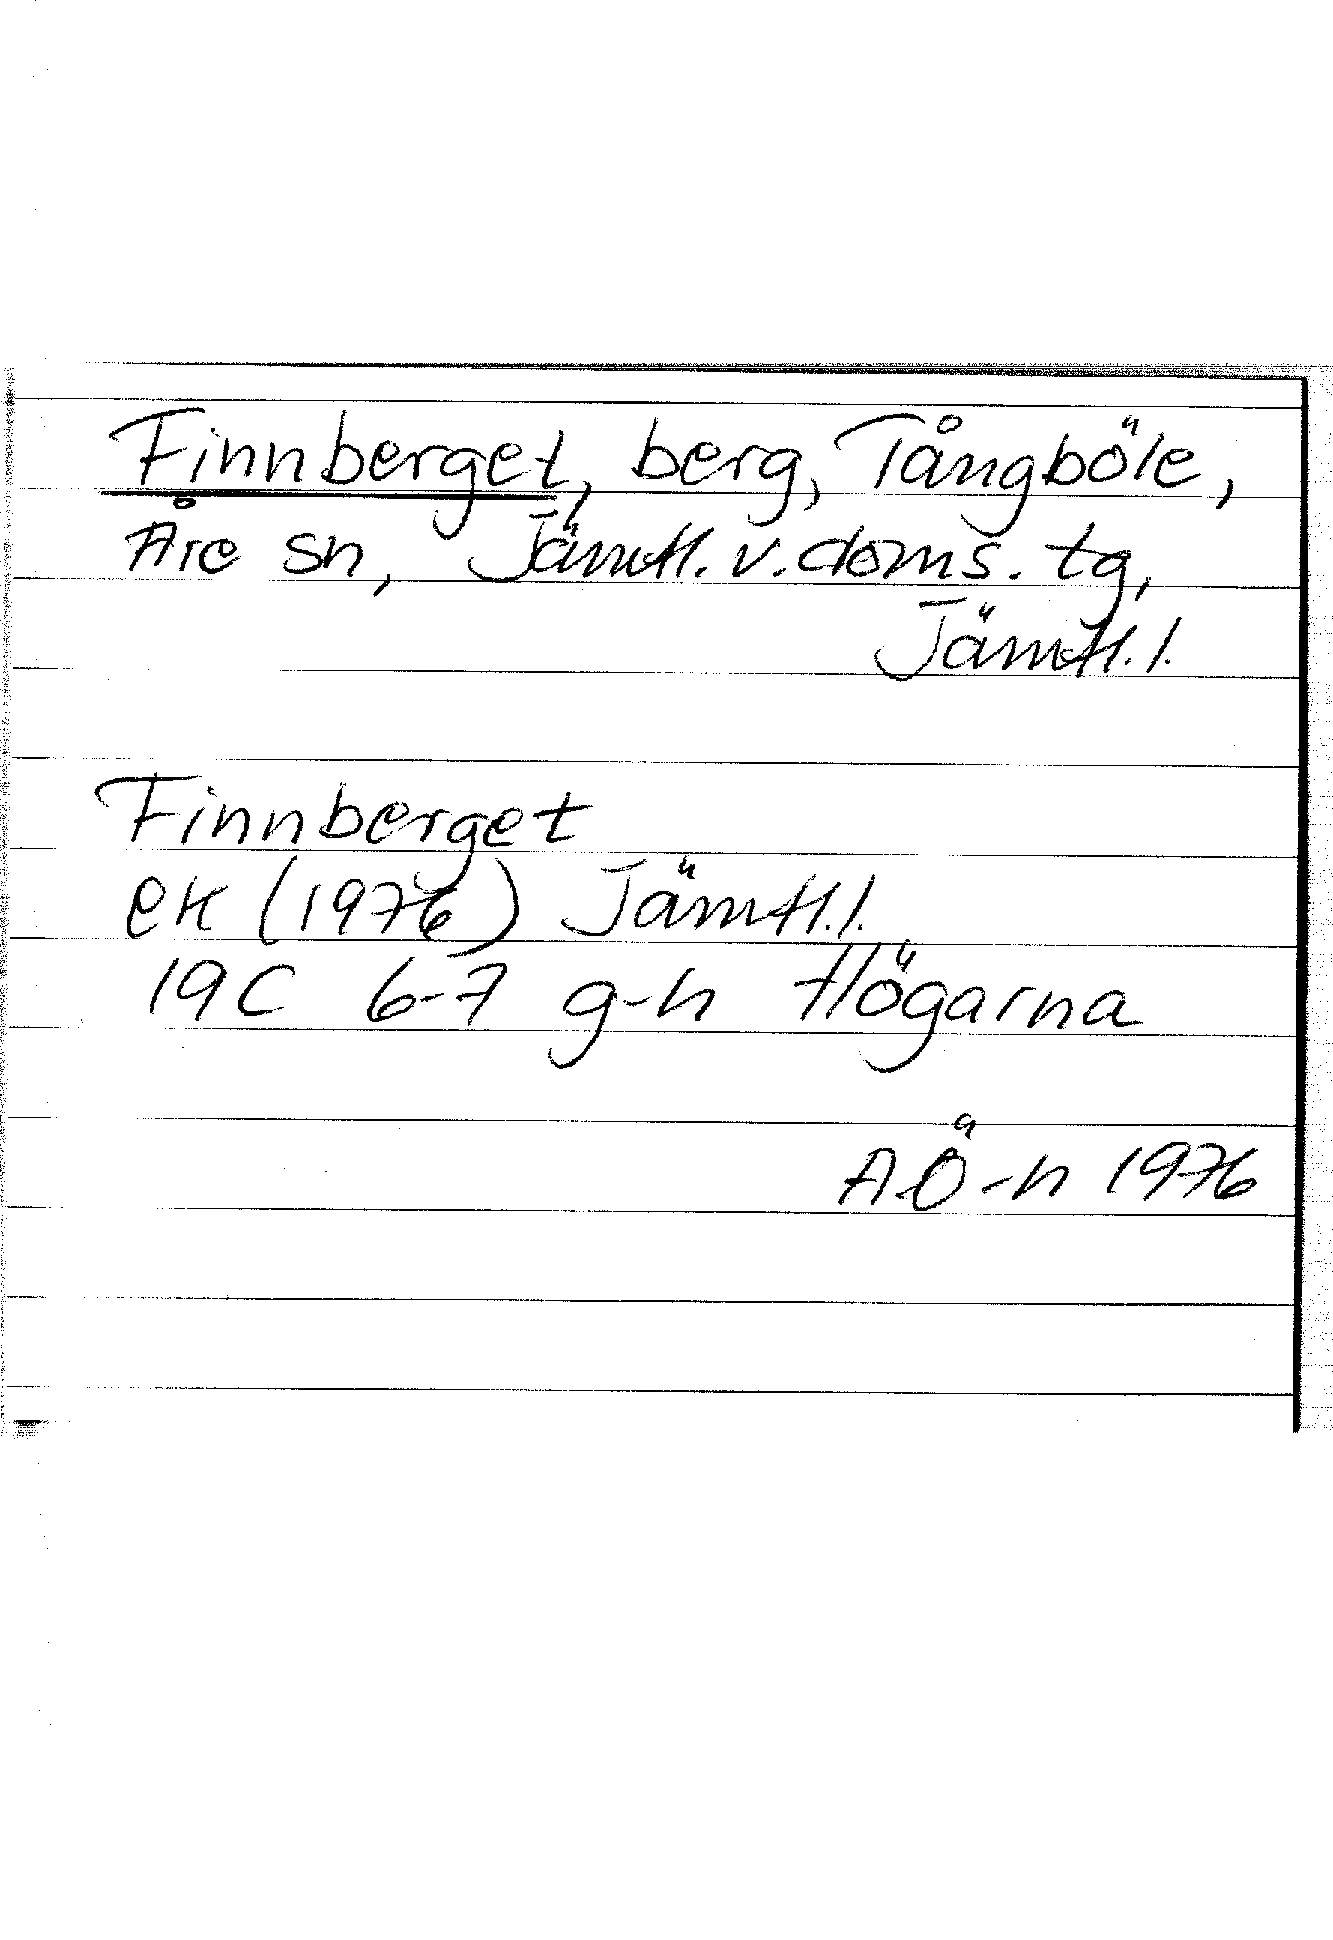 Finnberget, berg, Tångböle,
Åre sn, Jämtl. v. doms. tg,
Jämtl. l.
Finnberget
ek (1976) Jämtl. l.
19C 6-7 g-h Högarna
AÖ-n 1976